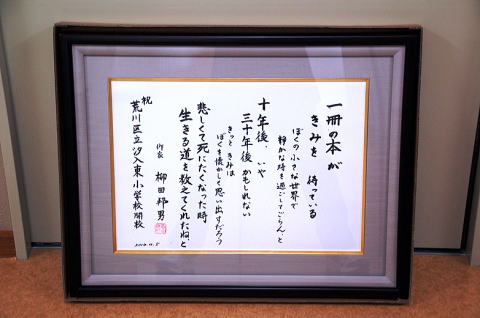 一冊の本が
きみを 待っている
ぼくの小さな世界で
静かな時を過ごしてごらん、と
十年後、いや
三十年後かもしれない
きっときみは
ぼくを懐かしく思い出すだろう
悲しくて死にたくなった時
生きる道を教えてくれたねと
作家 柳田邦男
祝
荒川区立汐入東小学校開校